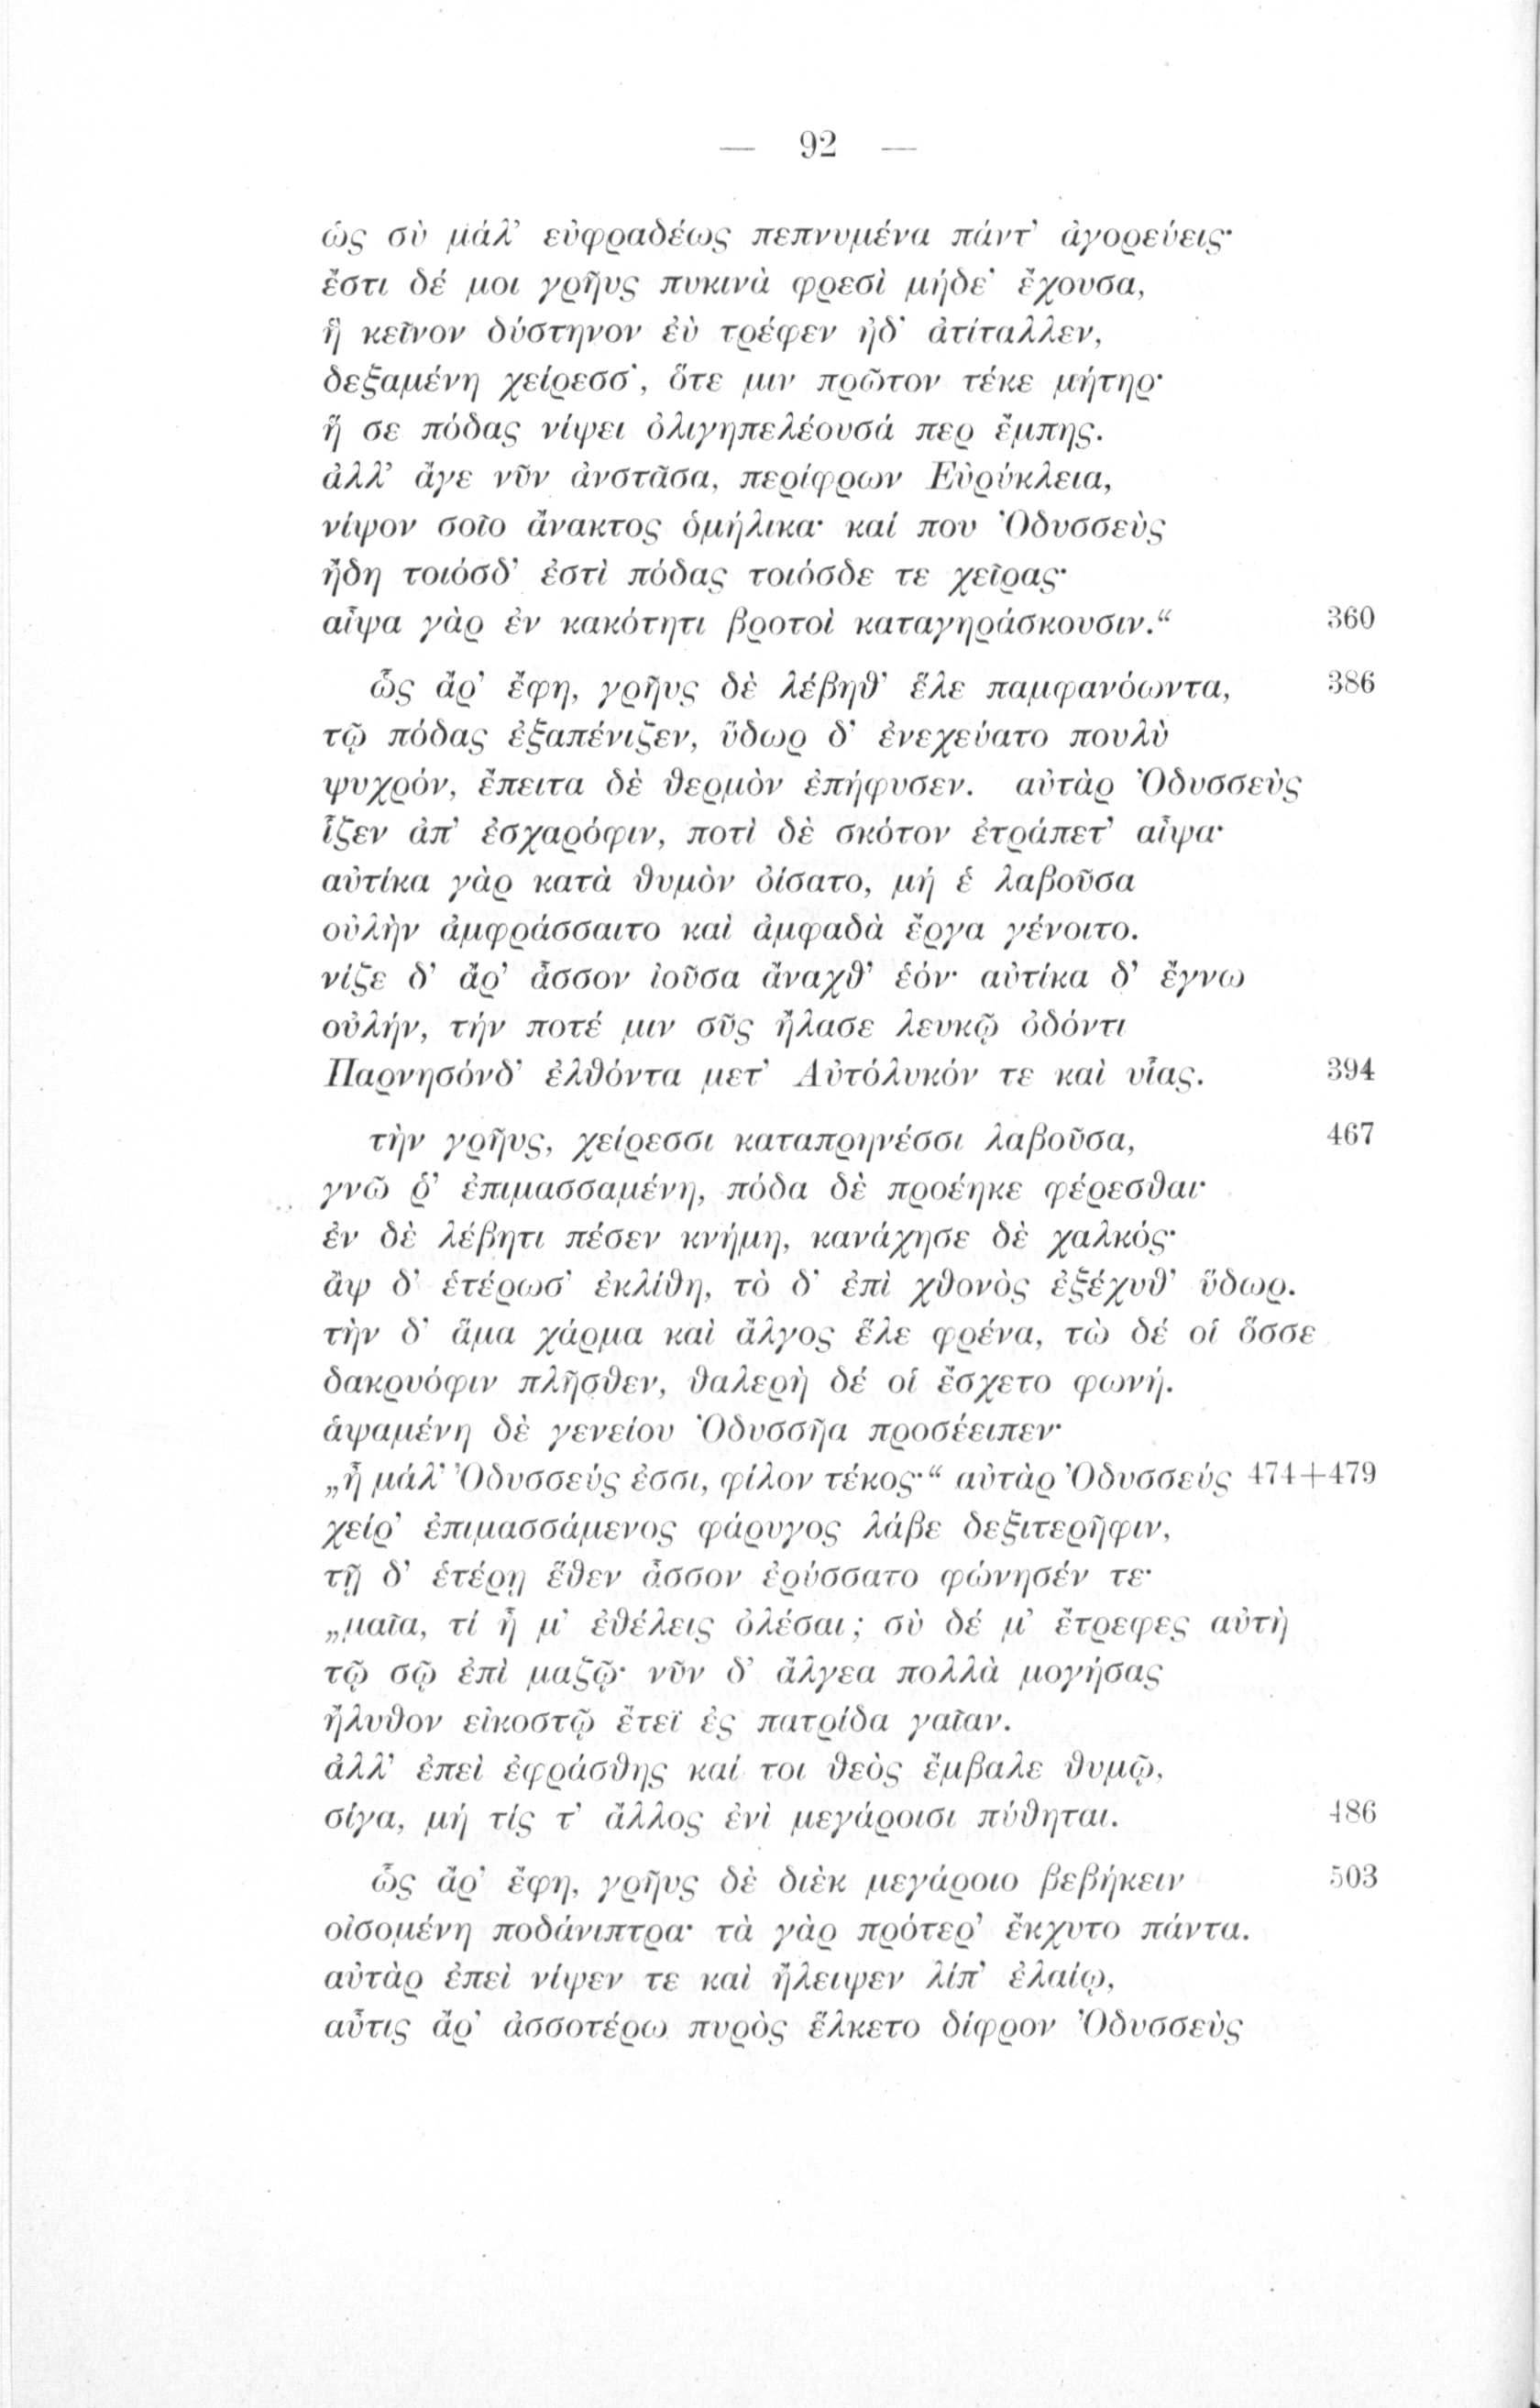 — 92 —
ὡς σὺ μάλ' εὐφραδέως πεπνυμένα πάντ' ἀγορεύεις·
ἔστι δέ μοι γρῆυς πυκινὰ φρεσὶ μήδε' ἔχουσα,
ἣ κεῖνον δύστηνον ἐὺ τρέφεν ἠδ' ἀτίταλλεν,
δεξαμένη χείρεσσ', ὅτε μιν πρῶτον τέκε μήτηρ·
ἥ σε πόδας νίψει ὀλιγηπελέουσά περ ἔμπης.
ἀλλ' ἄγε νῦν ἀνστᾶσα, περίφρων Εὐρύκλεια,
νίψον σοῖο ἄνακτος ὁμήλικα· καί που Ὀδυσσεὺς
ἤδη τοιόσδ' ἐστὶ πόδας τοιόσδε τε χεῖρας·
αἶψα γὰρ ἐν κακότητι βροτοὶ καταγηράσκουσιν.“ 360
ὣς ἄρ' ἔφη, γρῆυς δὲ λέβηθ' ἕλε παμφανόωντα, 386
τῷ πόδας ἐξαπένιζεν, ὕδωρ δ' ἐνεχεύατο πουλὺ
ψυχρόν, ἔπειτα δὲ θερμὸν ἐπήφυσεν. αὐτὰρ Ὀδυσσεὺς
ἷζεν ἀπ' ἐσχαρόφιν, ποτὶ δὲ σκότον ἐτράπετ' αἶψα·
αὐτίκα γὰρ κατὰ θυμὸν ὀίσατο, μή ἑ λαβοῦσα
οὐλὴν ἀμφράσσαιτο καὶ ἀμφαδὰ ἔργα γένοιτο.
νίζε δ' ἄρ' ἆσσον ἰοῦσα ἄναχθ' ἑόν· αὐτίκα δ' ἔγνω
οὐλήν, τήν ποτέ μιν σῦς ἤλασε λευκῷ ὀδόντι
Παρνησόνδ' ἐλθόντα μετ' Αὐτόλυκόν τε καὶ υἷας. 394
τὴν γρῆυς, χείρεσσι καταπρηνέσσι λαβοῦσα, 467
γνῶ ῥ' ἐπιμασσαμένη, πόδα δὲ προέηκε φέρεσθαι·
ἐν δὲ λέβητι πέσεν κνήμη, κανάχησε δὲ χαλκός·
ἂψ δ' ἑτέρωσ' ἐκλίθη, τὸ δ' ἐπὶ χθονὸς ἐξέχυθ' ὕδωρ.
τὴν δ' ἅμα χάρμα καὶ ἄλγος ἕλε φρένα, τὼ δέ οἱ ὄσσε
δακρυόφιν πλῆσθεν, θαλερὴ δέ οἱ ἔσχετο φωνή.
ἁψαμένη δὲ γενείου Ὀδυσσῆα προσέειπεν·
„ἦ μάλ' Ὀδυσσεύς ἐσσι, φίλον τέκος·“ αὐτὰρ Ὀδυσσεύς 474+479
χεῖρ' ἐπιμασσάμενος φάρυγος λάβε δεξιτερῆφιν,
τῇ δ' ἑτέρῃ ἕθεν ἆσσον ἐρύσσατο φώνησέν τε·
„μαῖα, τί ἦ μ' ἐθέλεις ὀλέσαι; σὺ δέ μ' ἔτρεφες αὐτὴ
τῷ σῷ ἐπὶ μαζῷ· νῦν δ' ἄλγεα πολλὰ μογήσας
ἤλυθον εἰκοστῷ ἔτεϊ ἐς πατρίδα γαῖαν.
ἀλλ' ἐπεὶ ἐφράσθης καί τοι θεὸς ἔμβαλε θυμῷ,
σίγα, μή τίς τ' ἄλλος ἐνὶ μεγάροισι πύθηται. 486
ὣς ἄρ' ἔφη, γρῆυς δὲ διὲκ μεγάροιο βεβήκειν 503
οἰσομένη ποδάνιπτρα· τὰ γὰρ πρότερ' ἔκχυτο πάντα.
αὐτὰρ ἐπεὶ νίψεν τε καὶ ἤλειψεν λίπ' ἐλαίῳ,
αὖτις ἄρ' ἀσσοτέρω πυρὸς ἕλκετο δίφρον Ὀδυσσεὺς